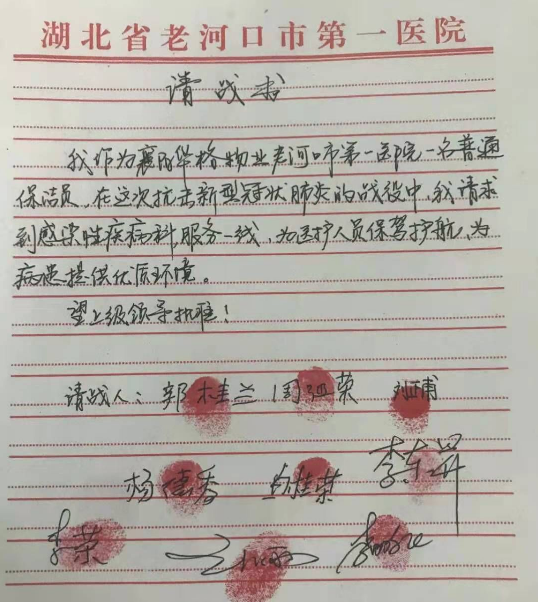 湖北省老河口市第一医院
请战书
我作为襄阳华格物业老河口市第一医院一名普通
保洁员,在这次抗击新型冠状肺炎的战役中,我请求
到感染性疾病科,服务一线,为医护人员保驾护航,为
病患提供优质环境。
望上级领导批准!
请战人:郭桂兰 周迎荣
杨德秀 桂荣 李东升
李荣